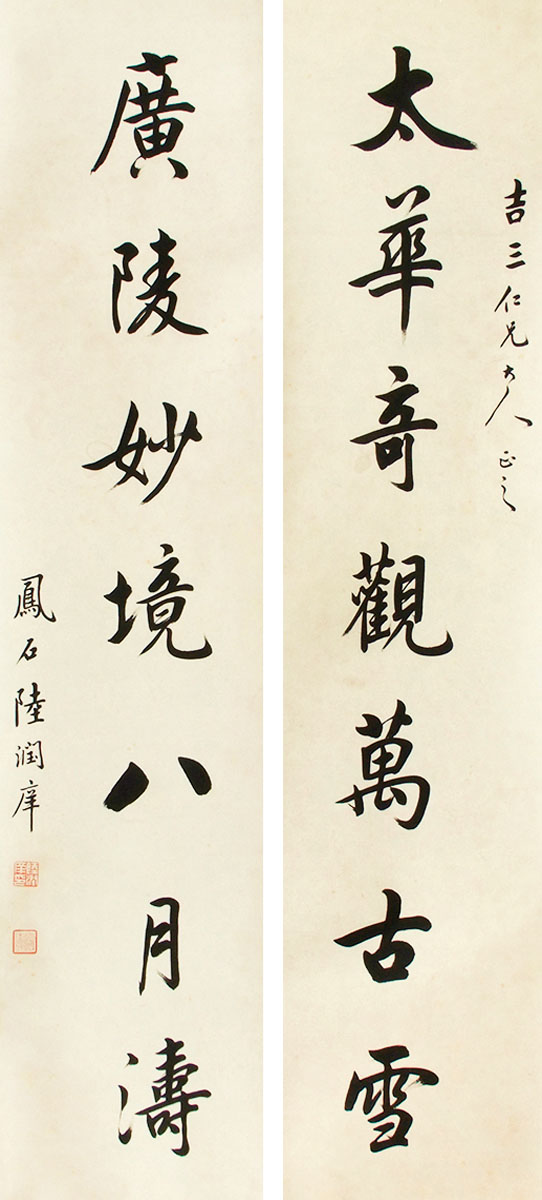 吉三仁兄大人正之
太華奇觀萬古雪
廣陵妙境八月濤
鳳石陸潤庠